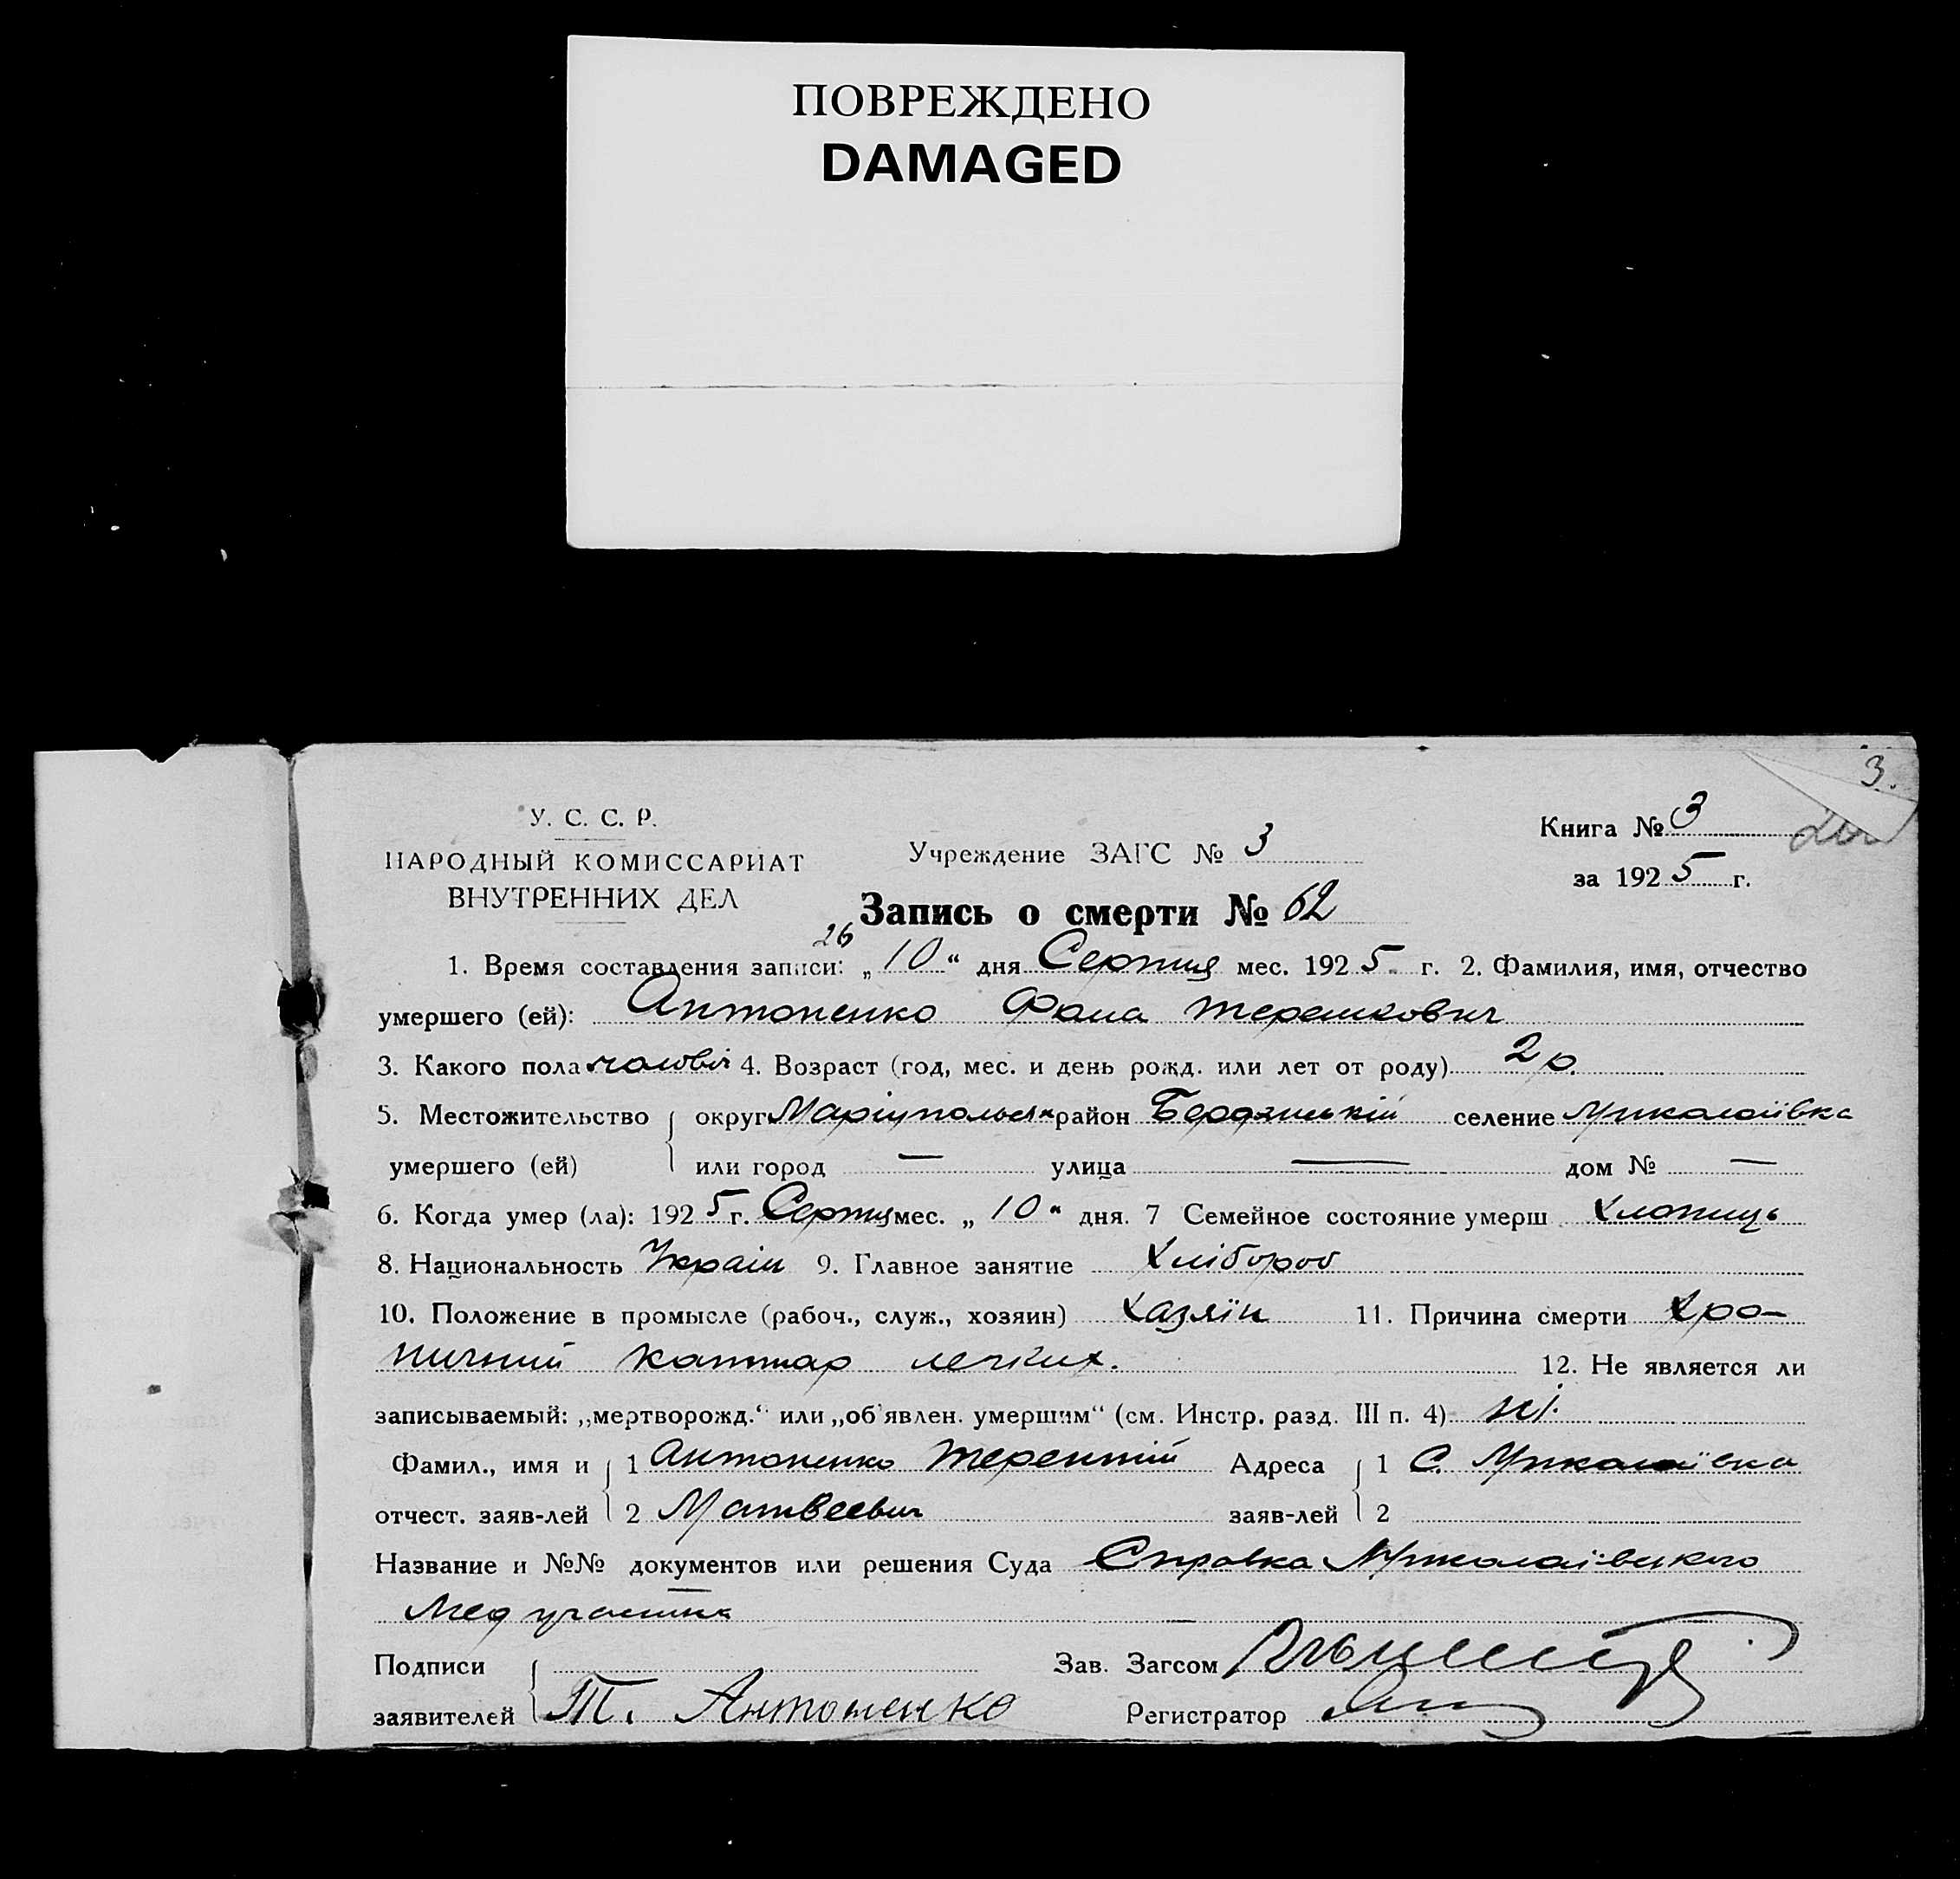 ПОВРЕЖДЕНО
DAMAGED
3.
У. С. С. Р.
НАРОДНЫЙ КОМИССАРИАТ
ВНУТРЕННИХ ДЕЛ
Учреждение ЗАГС № 3
Книга № 3
за 1925 г.
Запись о смерти № 62
26
1. Время составления записи: „10“ дня Серпня мес. 1925 г. 2. Фамилия, имя, отчество
умершего (ей): Антоненко Фома Терешкович
3. Какого пола чоловіч 4. Возраст (год, мес. и день рожд. или лет от роду) 2 р.
5. Местожительство округ Маріупольськ район Бердянський селение Миколаївка
умершего (ей) или город — улица — дом № —
6. Когда умер (ла): 1925 г. Серпня мес. „10“ дня. 7 Семейное состояние умерш хлопець
8. Национальность Украін 9. Главное занятие Хлібороб
10. Положение в промысле (рабоч., служ., хозяин) Хазяїн 11. Причина смерти Хро-
ничний каттар легких. 12. Не является ли
записываемый: „мертворожд.“ или „об'явлен. умершим“ (см. Инстр. разд. III п. 4) ні.
Фамил., имя и 1 Антоненко Терентій Адреса 1 С. Миколаївка
отчест. заяв-лей 2 Матвеевич заяв-лей 2
Название и №№ документов или решения Суда Справка Миколаівського
Мед участка
Подписи Зав. Загсом
заявителей Т. Антоненко Регистратор